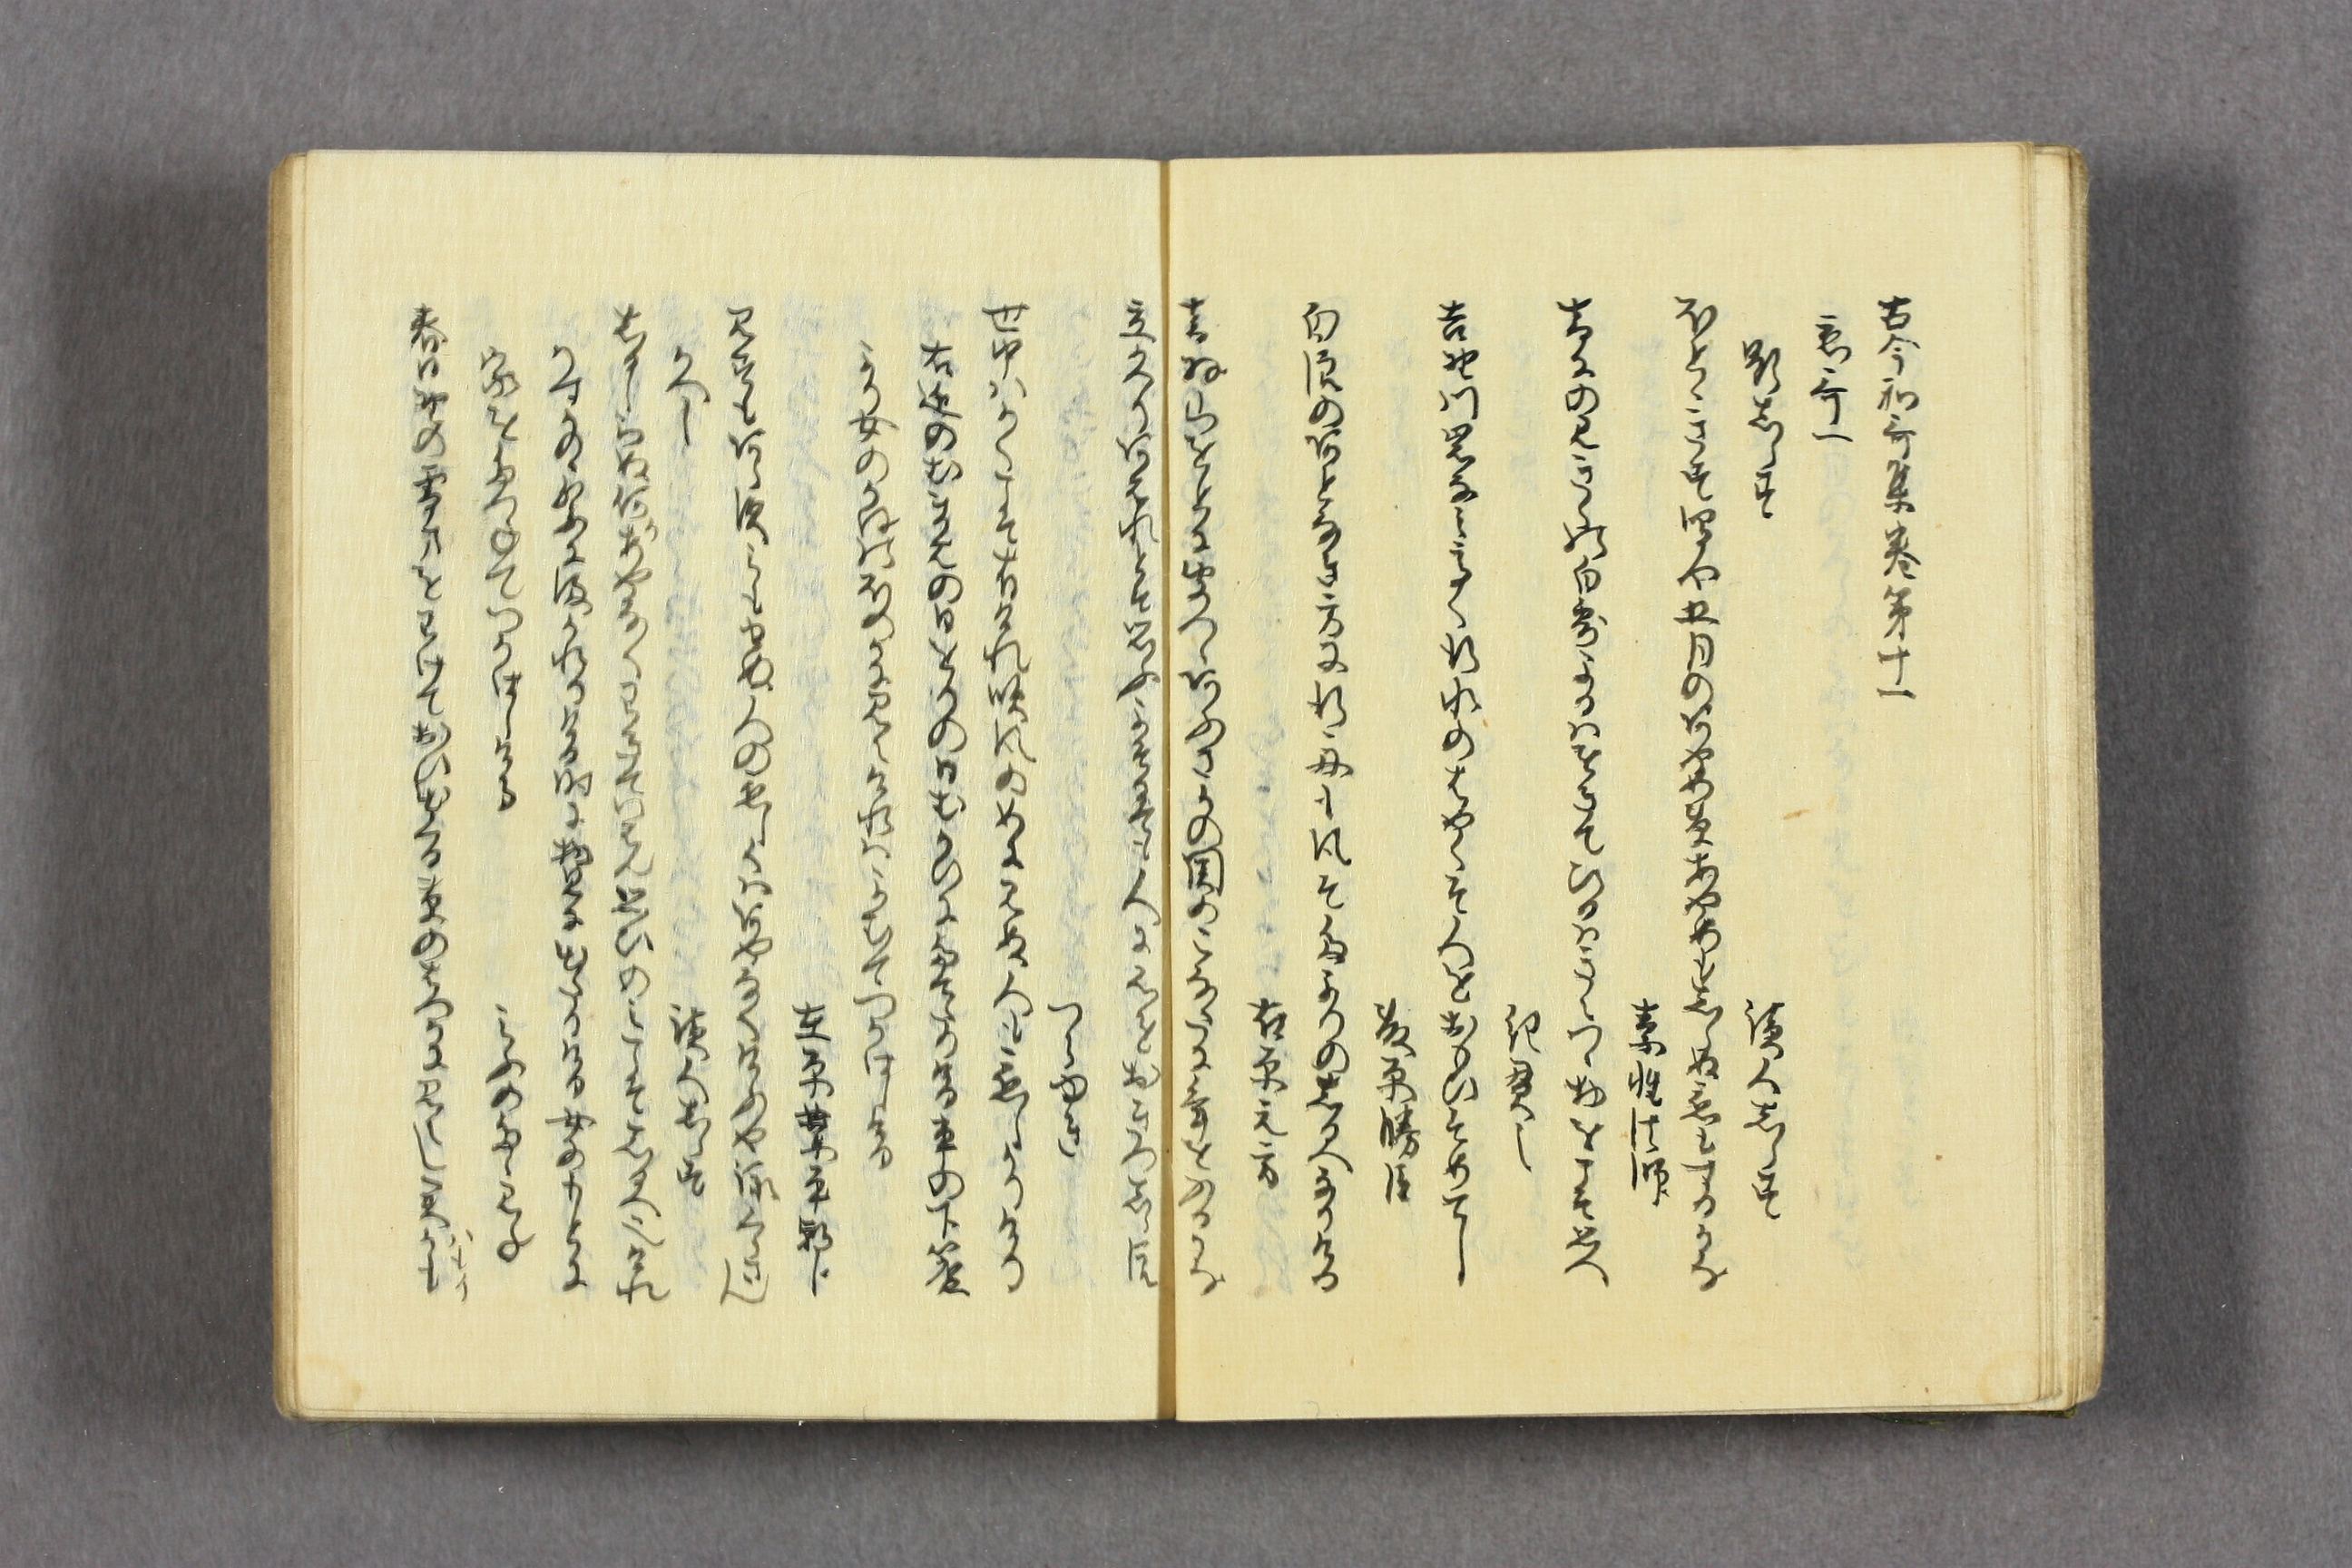 古今和哥集巻第十一
恋哥一
題しらす
読人しらす
郭公なくやさ月のあやめ草あやめもしらぬ恋もする哉
素性法師
音にのみきくの白露よるはおきてひるは思ひにあへすけぬへし
紀貫之
吉野川岩浪たかく行水のはやくそ人を思ひそめてし
藤原勝臣
白浪のあとなき方に行舟も風そたよりのしるへなりける
在原元方
音羽山をとにきゝつゝ相坂の関のこなたに年をふる哉
立帰りあはれとそ思ふよそにても人に心をおきつ白浪
つらゆき
世中はかくこそ有けれ吹風のめにみぬ人も恋しかりけり
右近のむまはのひをりの日むかひにたてたりける車の下簾
より女のかほのほのかにみえけれは
よむてつかはしける
在原業平朝臣
みすもあらす見もせぬ人の恋しくはあやなくけふやなかめくらさん
返し
読人しらす
しるしらぬ何かあやなくわきていはん思ひのみこそしるへなりけれ
かすかのまつりにまかれりける時に物見にいてたりける女のもとに
家をたつねてつかはしける
みふのたゝみね
春日野の雪まをわけておひいてくる草のはつかにみえし君はも